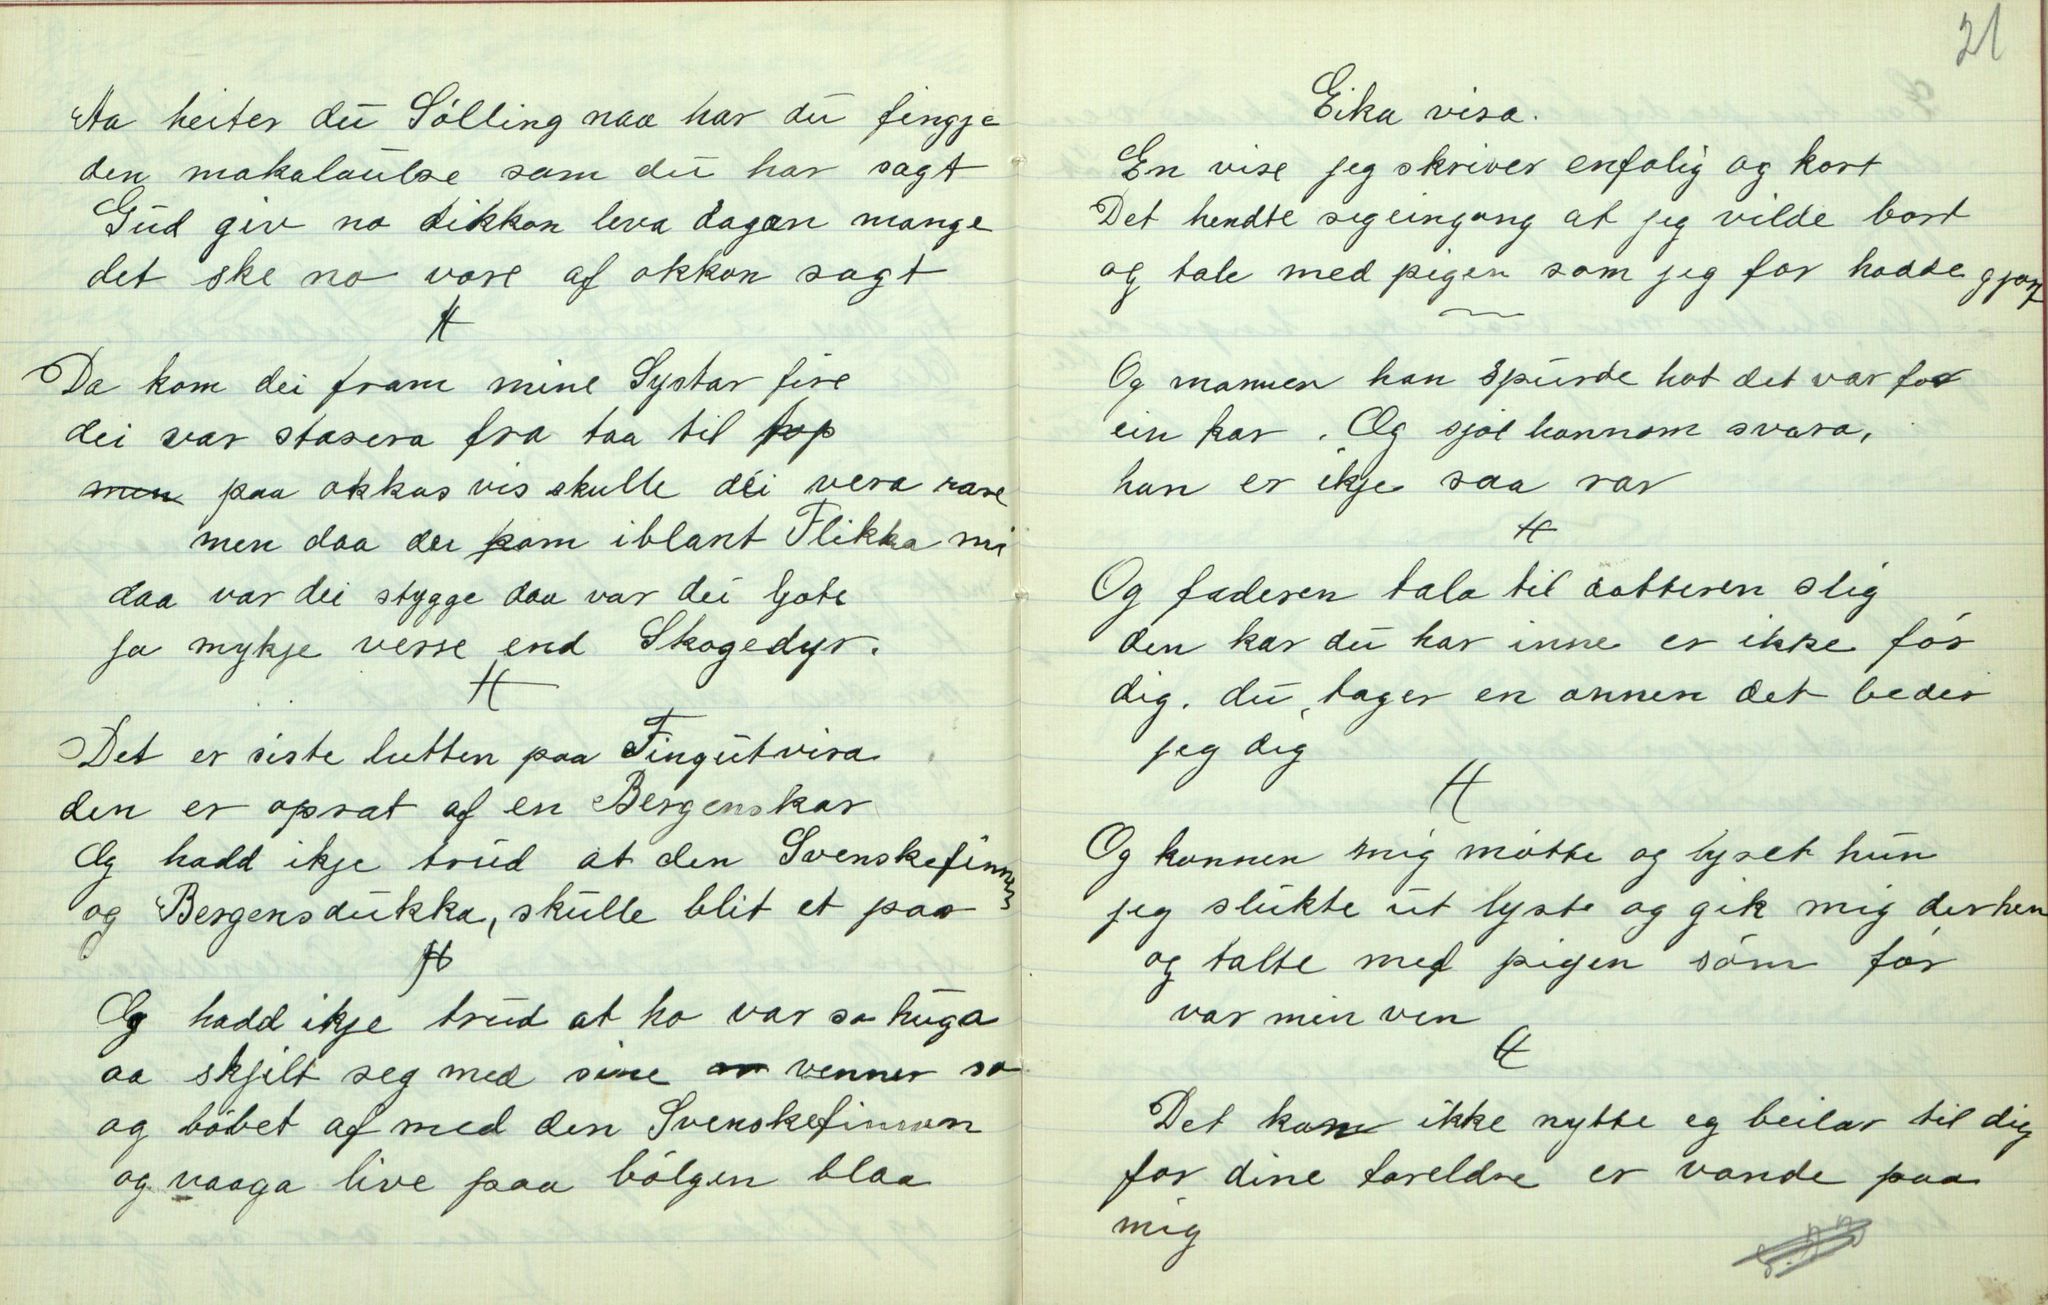 Aa heiter du Sólling naa har du fingje
den makalaulse som du har sagt
Gud giv no dikkon leva dagan mange
det ske no vare af okkon sagt
Da kom dei fram mine Systar fire
dei var stasera fra taa til top
men paa okkas vis skulle dei vera rare
men daa dei kom iblant Flikka mi
daa var dei stygge daa var dei ljote
ja mykje verre end Skogedyr.
Det er siste lutten paa Fingutvisa
den er oprat af en Bergenskar
Og hadd ikje trud at den Svenskefinnen
og Bergensdukka, skulle blit et par
Og hadd ikje trud at ho var so huga
aa skjilt seg med sine venner so
og bóbet af med den Svenskefinnan
og vaaga live paa bólgen blaa
21
Eika visa.
En vise jeg skriver enfolig og kort
Det hendte seg eingang at jeg vilde bort
og tale med pigen som jeg for hadde gjort
Og mannen han spurde hot det var for
ein kar. Og sjol honnom svara,
han er ikje saa rar
Og faderen tala til dotteren slig
den kar du har inne er ikke fór
dig. du tager en annen det beder
jeg dig
Og konnen mig mótte og lyset hun
jeg slukte ut lyste og gik mig derhen
og talte med pigen sóm fór
var min ven
Det kan ikke nytte eg beilar til dig
for dine foreldre er vonde paa
mig